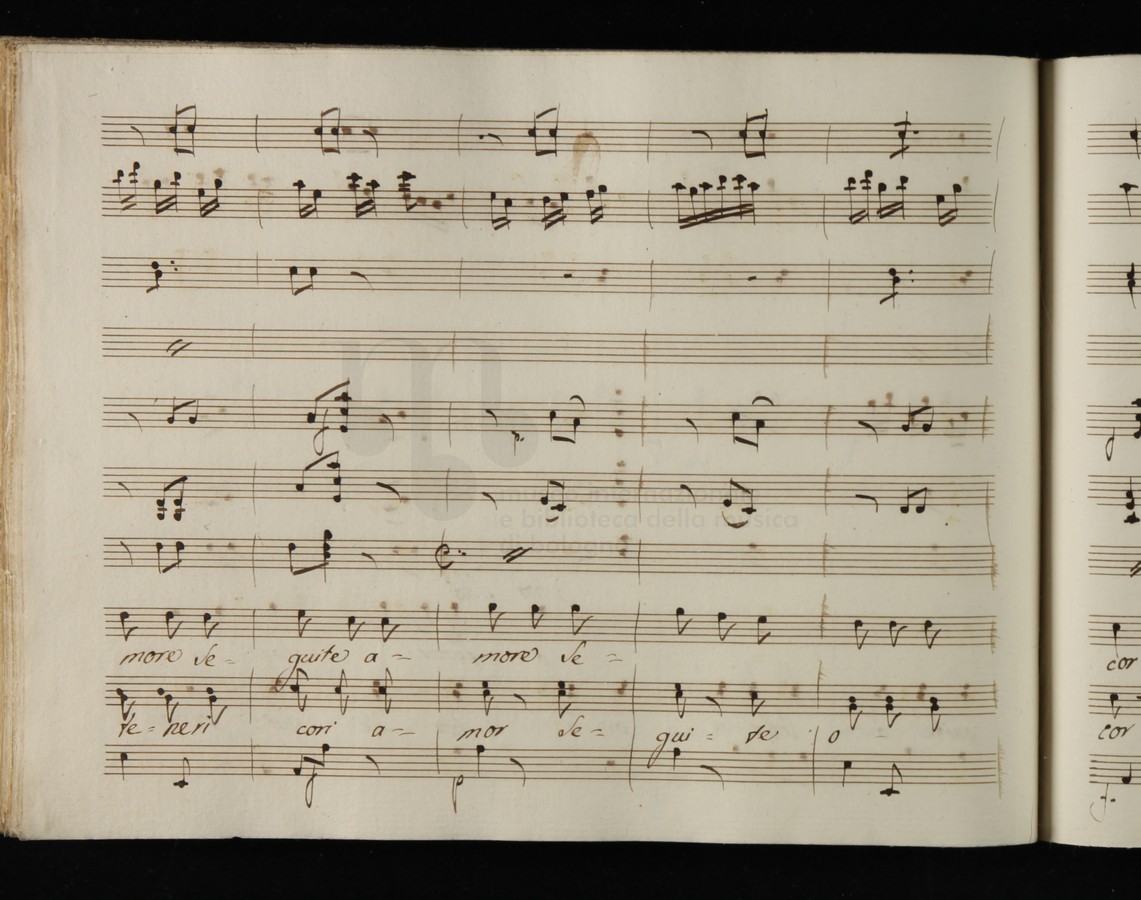 f
p.
more se=
guite a-=
more se=
cor
te=neri
cori a-=
mor se=
gui= te
o -
cor
f
p
f.
museo internazionale
e biblioteca della musica
di bologna